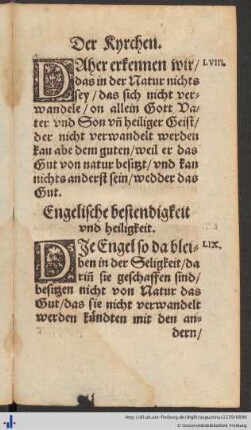 Der Kyrchen.
DAher erkennen wir/ LVIII.
das in der Natur nichts
sey/das sich nicht ver-
wandele/on allein Gott Va-
ter vnd Son vñ heiliger Geist/
der nicht verwandelt werden
kan abe dem guten/weil er das
Gut von natur besitzt/vnd kan
nichts anderst sein/wedder das
Gut.
Engelische bestendigkeit
vnd heiligkeit.
DIe Engel so da blei- LIX.
ben in der Seligkeit/da
riñ sie geschaffen sind/
besitzen nicht von Natur das
Gut/das sie nicht verwandelt
werden kündten mit den an-
dern/
© Universitätsbibliothek Freiburg